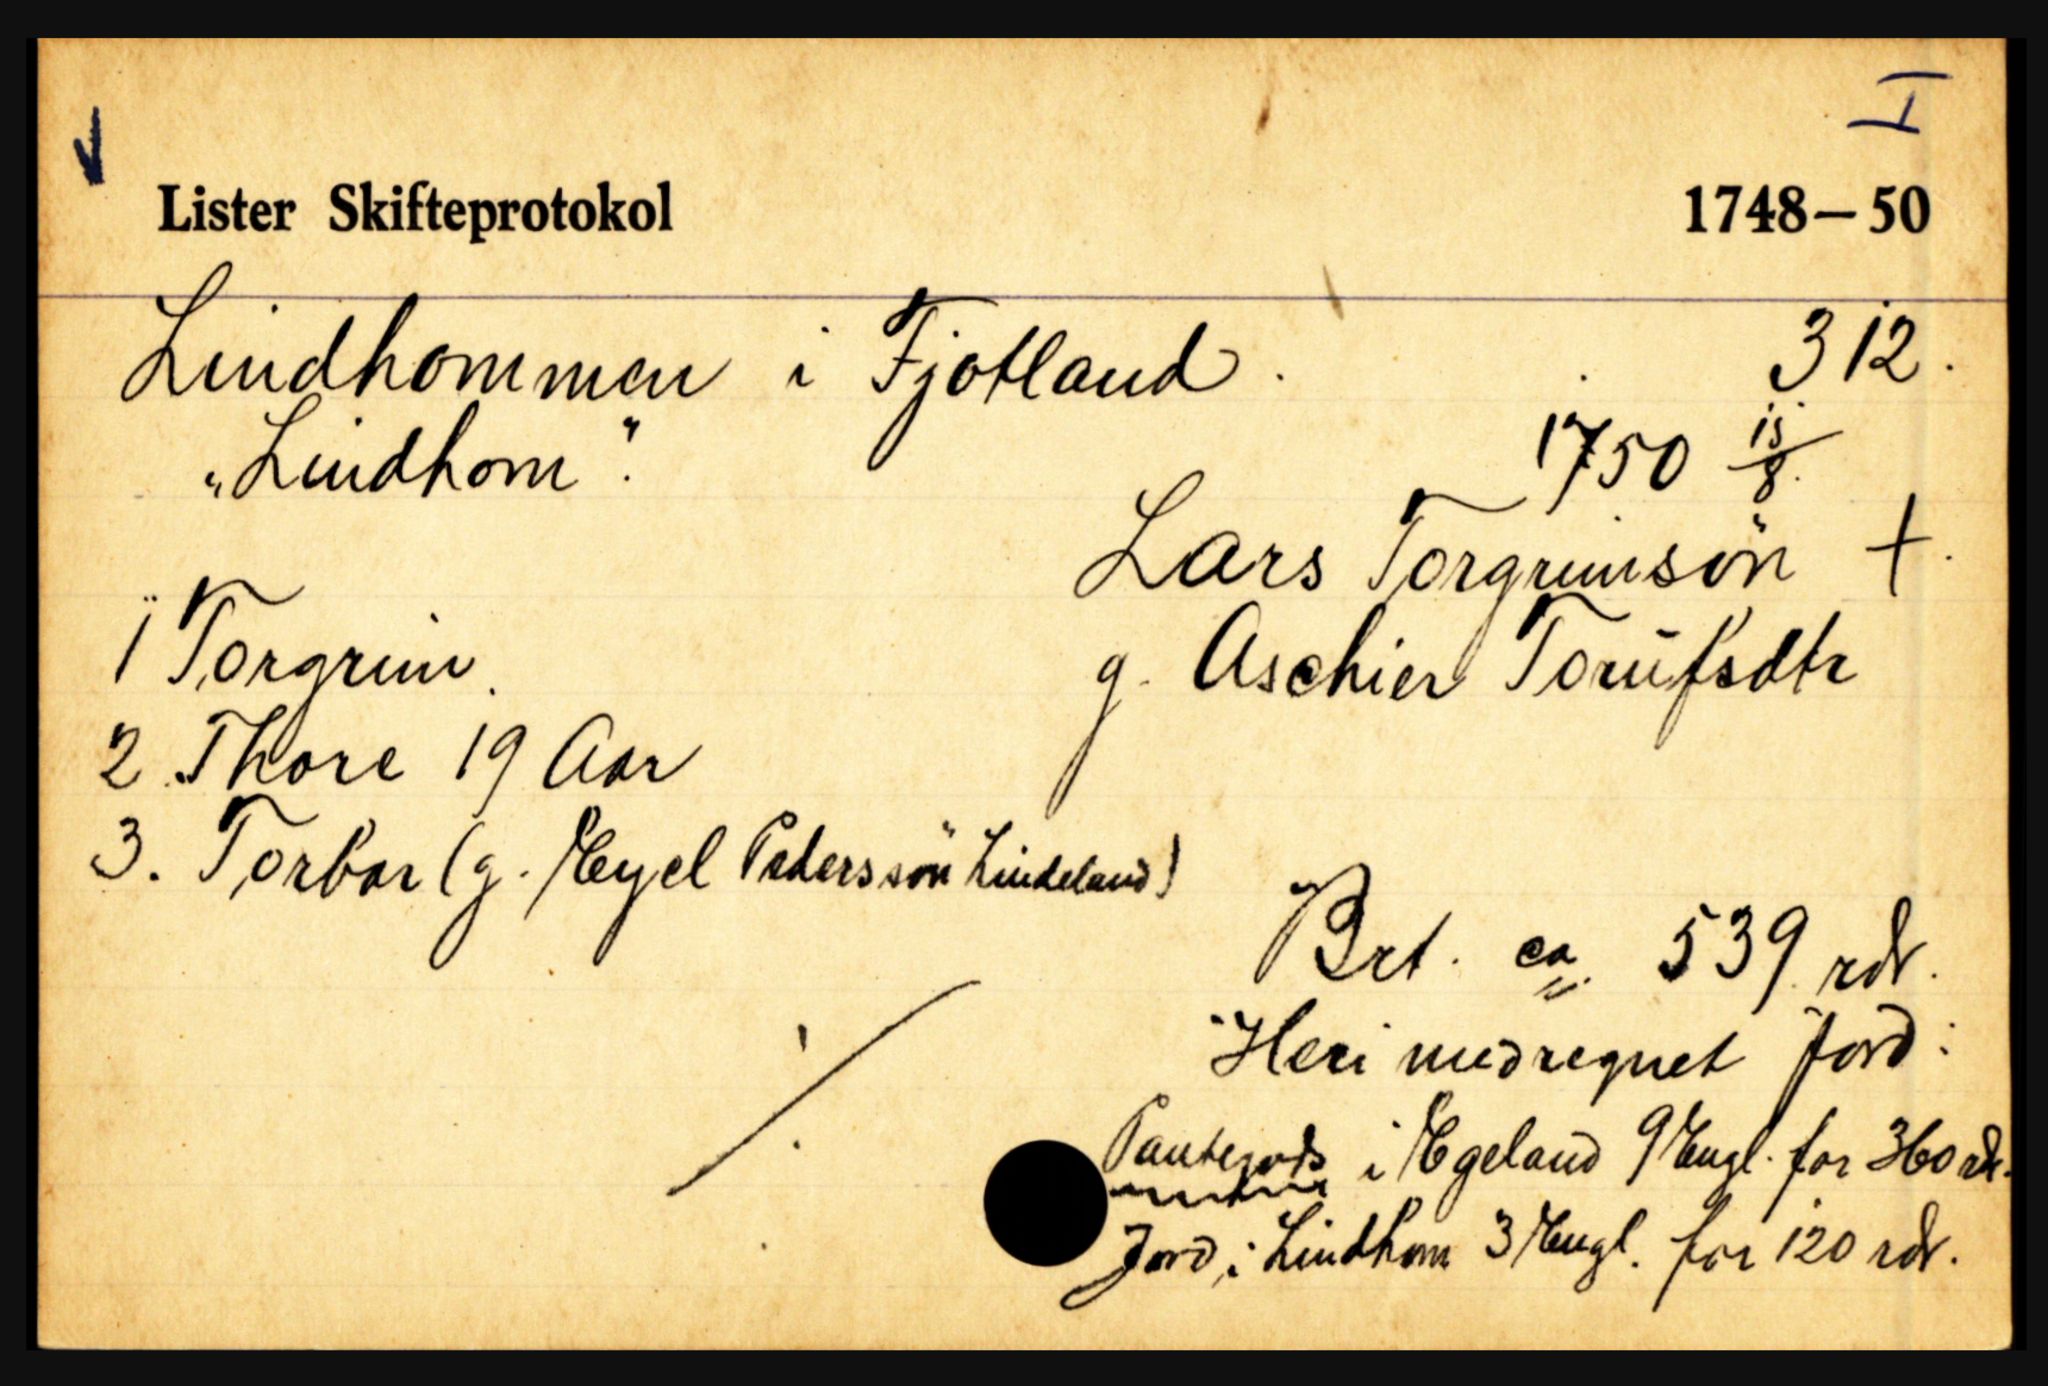 I
Lister Skifteprotokol 1748-50
Lindhommen i Fjotland. 312.
„Lindhom". 1750 15/8.
Lars Torgrimsön +.
1 Torgrim. g. Aschier Torüfsdtr
2. Thore 19 Aar
3. Torbor (g. Eyel Pederssön Lindeland)
Brt. ca. 539 rdr.
Heri medregnet Jord:
Pantegods i Egeland 9 Engl. for 360 rdr.
Jord i Lindhom 3 Engl. for 120 rdr.